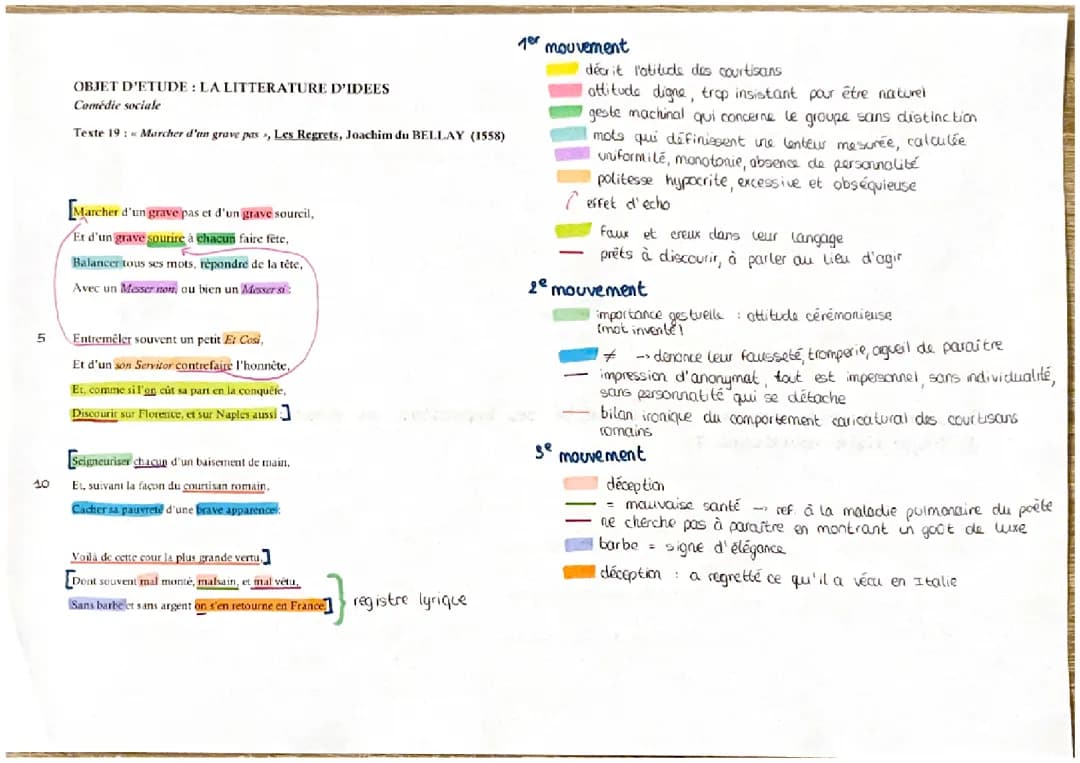 OBJET D'ETUDE : LA LITTERATURE D'IDEES
Comédie sociale
Texte 19 : « Marcher d'un grave pas », Les Regrets, Joachim du BELLAY (1558)
[Marcher d'un grave pas et d'un grave sourcil,
Et d'un grave sourire à chacun faire fête,
Balancer tous ses mots, répondre de la tête,
Avec un Messer non, ou bien un Messer si :
5 Entremêler souvent un petit Et Cosi,
Et d'un son Servitor contrefaire l'honnête,
Et, comme si l'on eût sa part en la conquête,
Discourir sur Florence, et sur Naples aussi :]
[Seigneuriser chacun d'un baisement de main,
10 Et, suivant la façon du courtisan romain,
Cacher sa pauvreté d'une brave apparence :
Voilà de cette cour la plus grande vertu,]
[Dont souvent mal monté, malsain, et mal vêtu,
Sans barbe et sans argent on s'en retourne en France.]
registre lyrique
1er mouvement
décrit l'atitude des courtisans
attitude digne, trop insistant pour être naturel
geste machinal qui concerne le groupe sans distinction
mots qui définissent une lenteur mesurée, calculée
uniformité, monotonie, absence de personnalité
politesse hypocrite, excessive et obséquieuse
effet d'echo
faux et creux dans leur langage
prêts à discourir, à parler au lieu d'agir
2e mouvement
importance gestuelle : attitude cérémonieuse
(mot inventé)
≠ → dénonce leur fausseté, tromperie, orgueil de paraître
impression d'anonymat, tout est impersonnel, sans individualité,
sans personnatité qui se détache
bilan ironique du comportement caricatural des courtisans
romains
3e mouvement
déception
= mauvaise santé → ref. à la maladie pulmonaire du poète
ne cherche pas à paraître en montrant un goût de luxe
barbe = signe d'élégance
déception : a regretté ce qu'il a vécu en Italie